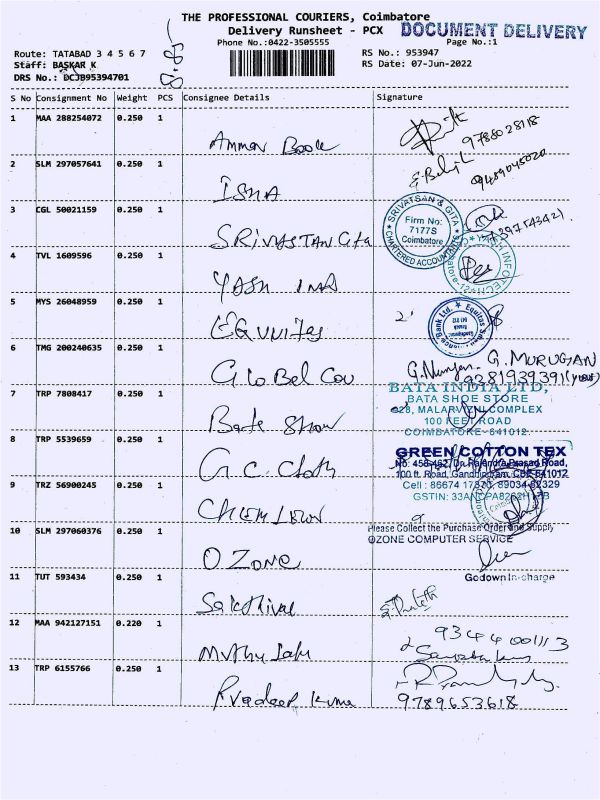 THE PROFESSIONAL COURIERS, Coimbatore
Delivery Runsheet - PCX
DOCUMENT DELIVERY
Phone No.:0422-3505555
Page No.:1
Route: TATABAD 3 4 5 6 7
RS No.: 953947
Staff: BASKAR K
RS Date: 07-Jun-2022
DRS No.: DCJB95394701
S No Consignment No Weight PCS Consignee Details Signature
1 MAA 288254072 0.250 1
Ammar Book
9788028118
2 SLM 297057641 0.250 1
ISHA
9489045020
3 CGL 50021159 0.250 1
SRIVASTAN Gita
SRIVATSAN & GITA
Firm No:
7177S
Coimbatore
CHARTERED ACCOUNTANTS
4 TVL 1609596 0.250 1
YASH
YASH INFOTECH
5 MYS 26048959 0.250 1
EQUUITES
Equitas
Bank Ltd.
6 TMG 200240635 0.250 1
Globel Cou
G. MURUGAN
9281939391
7 TRP 7808417 0.250 1
Bata Show
BATA INDIA LTD,
BATA SHOE STORE
828, MALARVIZHI COMPLEX
100 FEET ROAD
COIMBATORE-641012.
8 TRP 5539659 0.250 1
G.C. Cloth
GREEN COTTON TEX
No: 458-462, Dr. Rajendra Prasad Road,
100 ft. Road, Gandhipuram, CBE-641012
Cell : 86674 17870, 89034-82329
GSTIN:
9 TRZ 56900245 0.250 1
CHEM
10 SLM 297060376 0.250 1
OZone
Please Collect the Purchase Order and Supply
OZONE COMPUTER SERVICE
Godown In-charge
11 TUT 593434 0.250 1
Sakthivel
12 MAA 942127151 0.220 1
Muthu
9344001113
13 TRP 6155766 0.250 1
Pradeep Kuma
9789653618